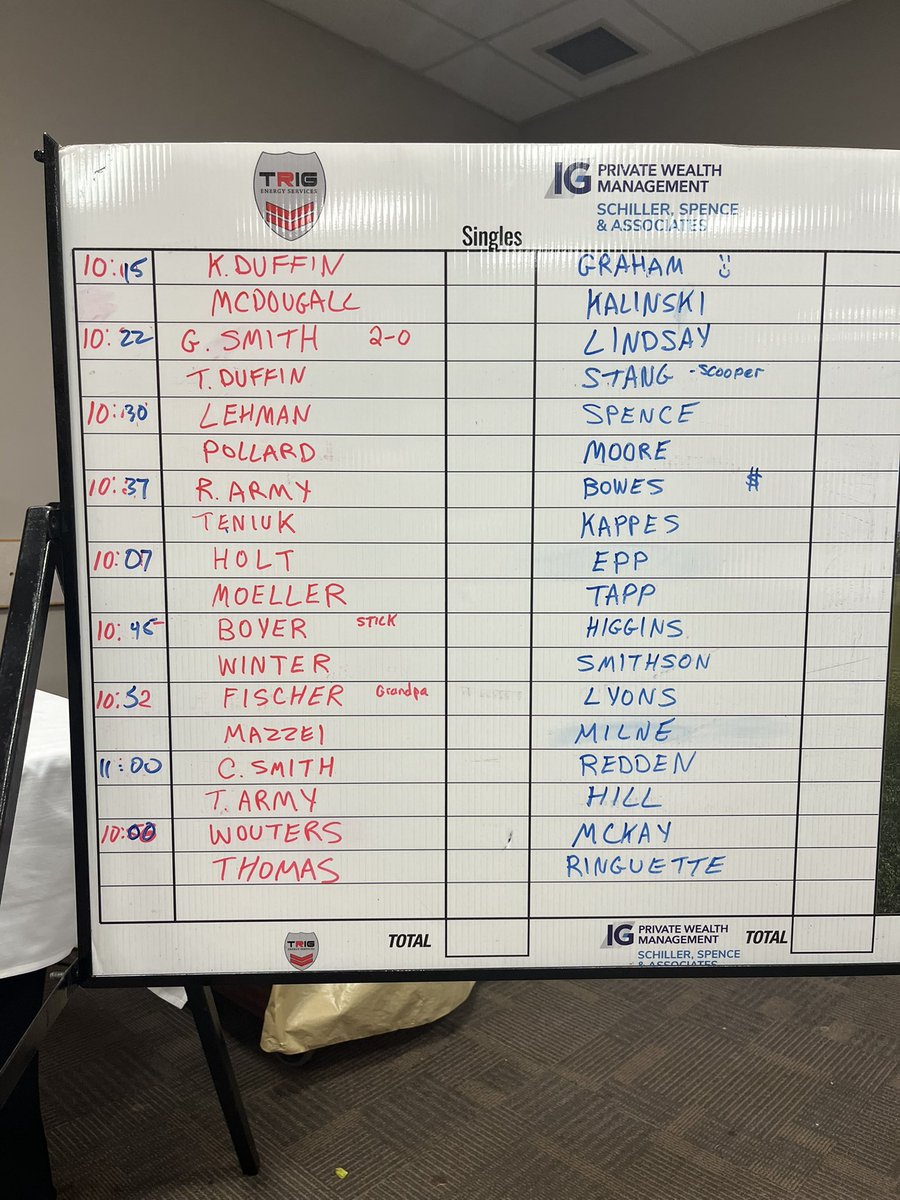 TRIG
ENERGY SERVICES
IG PRIVATE WEALTH
MANAGEMENT
SCHILLER, SPENCE
& ASSOCIATES
Singles
10:15 K. DUFFIN GRAHAM
MCDOUGALL KALINSKI
10:22 G. SMITH 2-0 LINDSAY
T. DUFFIN STANG -Scooper
10:30 LEHMAN SPENCE
POLLARD MOORE
10:37 R. ARMY BOWES $
TENIUK KAPPES
10:07 HOLT EPP
MOELLER TAPP
10:45 BOYER STICK HIGGINS
WINTER SMITHSON
10:52 FISCHER Grandpa LYONS
MAZZEI MILNE
11:00 C. SMITH REDDEN
T. ARMY HILL
10:00 WOUTERS MCKAY
THOMAS RINGUETTE
TRIG
ENERGY SERVICES
TOTAL
IG PRIVATE WEALTH
MANAGEMENT
SCHILLER, SPENCE
& ASSOCIATES
TOTAL